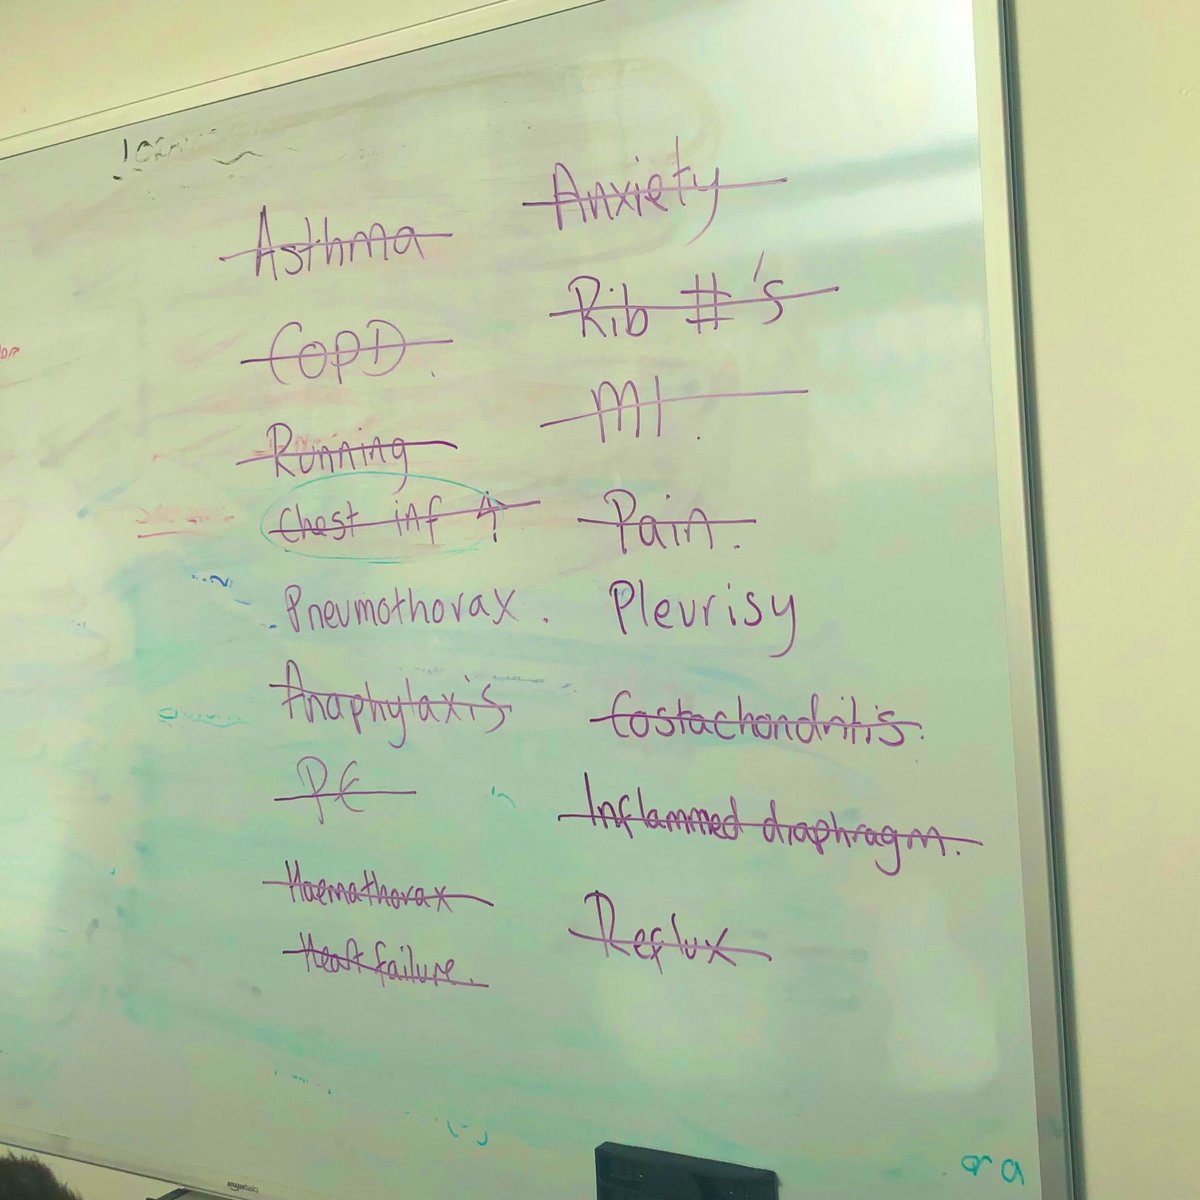 Asthma
COPD.
Running
Chest inf
Pneumothorax.
Anaphylaxis
PE
Haemathorax
Heart failure.
Anxiety
Rib #'s
MI.
Pain.
Pleurisy
Costachondritis.
Inflammed diaphragm.
Reflux
amazonbasics